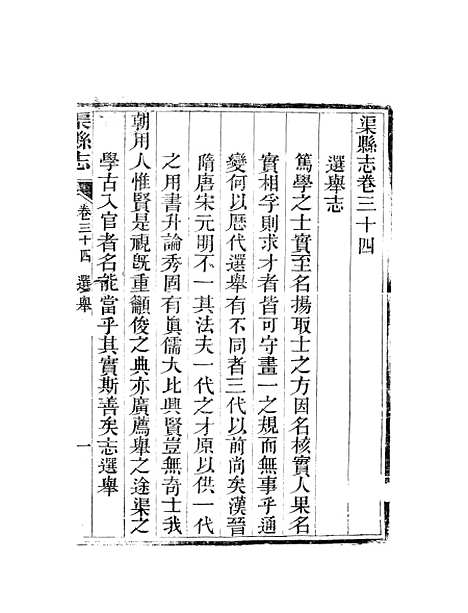 渠縣志卷三十四
選舉志
篤學之士實至名揚取士之方因名核實人果名
實相孚則求才者皆可守畫一之規而無事乎通
變何以歷代選舉有不同者三代以前尚矣漢晉
隋唐宋元明不一其法夫一代之才原以供一代
之用書升論秀罔有眞儒大比興賢豈無奇士我
朝用人惟賢是視旣重籲俊之典亦廣薦舉之途渠之
學古入官者名能當乎其實斯善矣志選舉
渠縣志 卷三十四 選舉 一